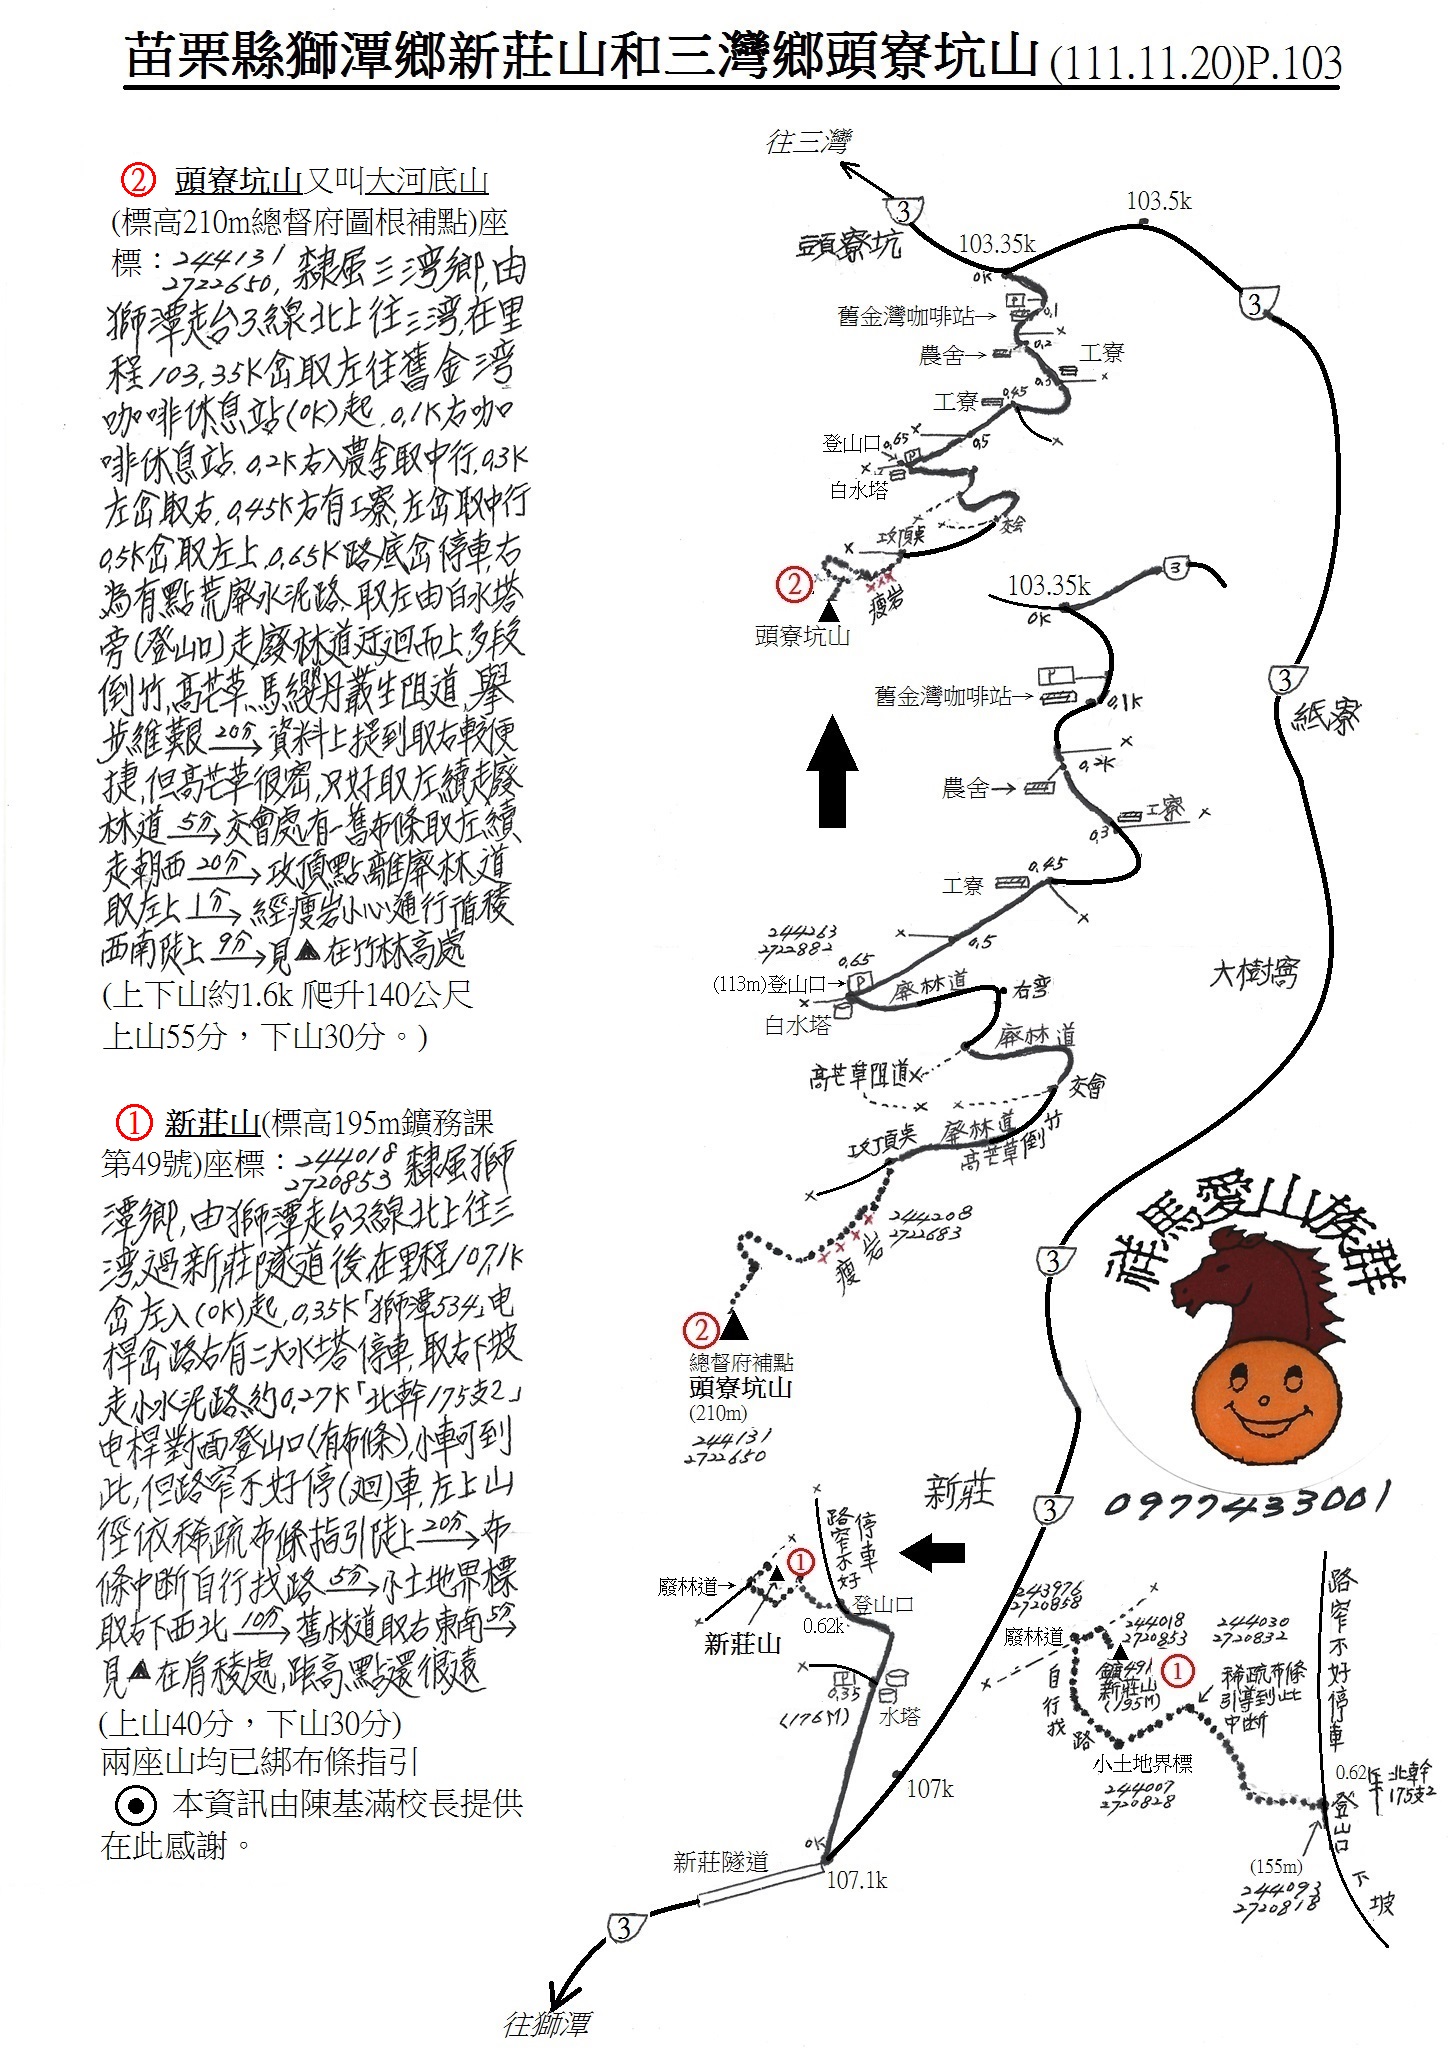 苗栗縣獅潭鄉新莊山和三灣鄉頭寮坑山(111.11.20)P.103
② 頭寮坑山又叫大河底山
(標高210m總督府圖根補點)座
標：244131
2722650, 隸屬三湾鄉,由
獅潭走台3線北上往三湾,在里
程103.35K岔取左往舊金湾
咖啡休息站(0K)起,0.1K右咖
啡休息站,0.2K右入農舍取中行,0.3K
左岔取右,0.45K右有工寮,左岔取中行
0.5K岔取左上,0.65K路底岔停車,右
為有點荒廢水泥路,取左由白水塔
旁(登山口)走廢林道迂迴而上,多段
倒竹,高芒草,馬纓丹叢生阻道,舉
步維艱 20分→ 資料上提到取右較便
捷,但高芒草很密,只好取左續走廢
林道 5分→ 交會處有一舊布條取左續
走朝西 20分→ 攻頂點離廢林道
取左上 1分→ 經瘦岩小心通行循稜
西南陡上 9分→ 見▲在竹林高處
(上下山約1.6k 爬升140公尺
上山55分，下山30分。)
① 新莊山(標高195m鑛務課
第49號)座標：244018
2720853 隸屬獅
潭鄉,由獅潭走台3線北上往三
湾,過新莊隧道後在里程107.1K
岔左入(0K)起,0.35K「獅潭534」电
桿岔路右有二大水塔停車,取右下坡
走小水泥路約0.27K「北幹175支2」
电桿對面登山口(有布條),小車可到
此,但路窄不好停(迴)車,左上山
徑依稀疏布條指引陡上 20分→ 布
條中斷自行找路 5分→ 小土地界標
取右下西北 10分→ 舊林道取右東南 5分→
見▲在肩稜處,距高點還很遠
(上山40分，下山30分)
兩座山均已綁布條指引
本資訊由陳基滿校長提供
在此感謝。
往三灣
3
頭寮坑
103.35k
103.5k
0K
3
P
舊金灣咖啡站→
0.1
農舍→
0.2
工寮
0.3
工寮
0.45
登山口
0.65
0.5
P
白水塔
攻頂點
交會
②
瘦岩
頭寮坑山
103.35k
3
0K
P
舊金灣咖啡站→
0.1K
0.2K
農舍→
工寮
0.3
工寮
0.45
244263
2722882
0.5
0.65
P
(113m)登山口→
廢林道
右彎
白水塔
廢林道
高芒草阻道
交會
攻頂點
廢林道
高芒草倒竹
244208
2722683
瘦岩
②
總督府補點
頭寮坑山
(210m)
244131
2722650
3
紙寮
大樹窩
3
祥馬愛山族群
0977433001
新莊
3
路窄不好
停車
①
廢林道→
登山口
0.62k
新莊山
P
0.35
(176M)
水塔
107k
0K
新莊隧道
107.1k
3
往獅潭
243976
2720858
廢林道
244018
2720853
鑛491
新莊山
(195M)
①
244030
2720832
稀疏布條
引導到此
中斷
自行找路
小土地界標
244007
2720828
路窄不好停車
0.62k
北幹
175支2
登山口
(155m)
244093
2720818
下坡